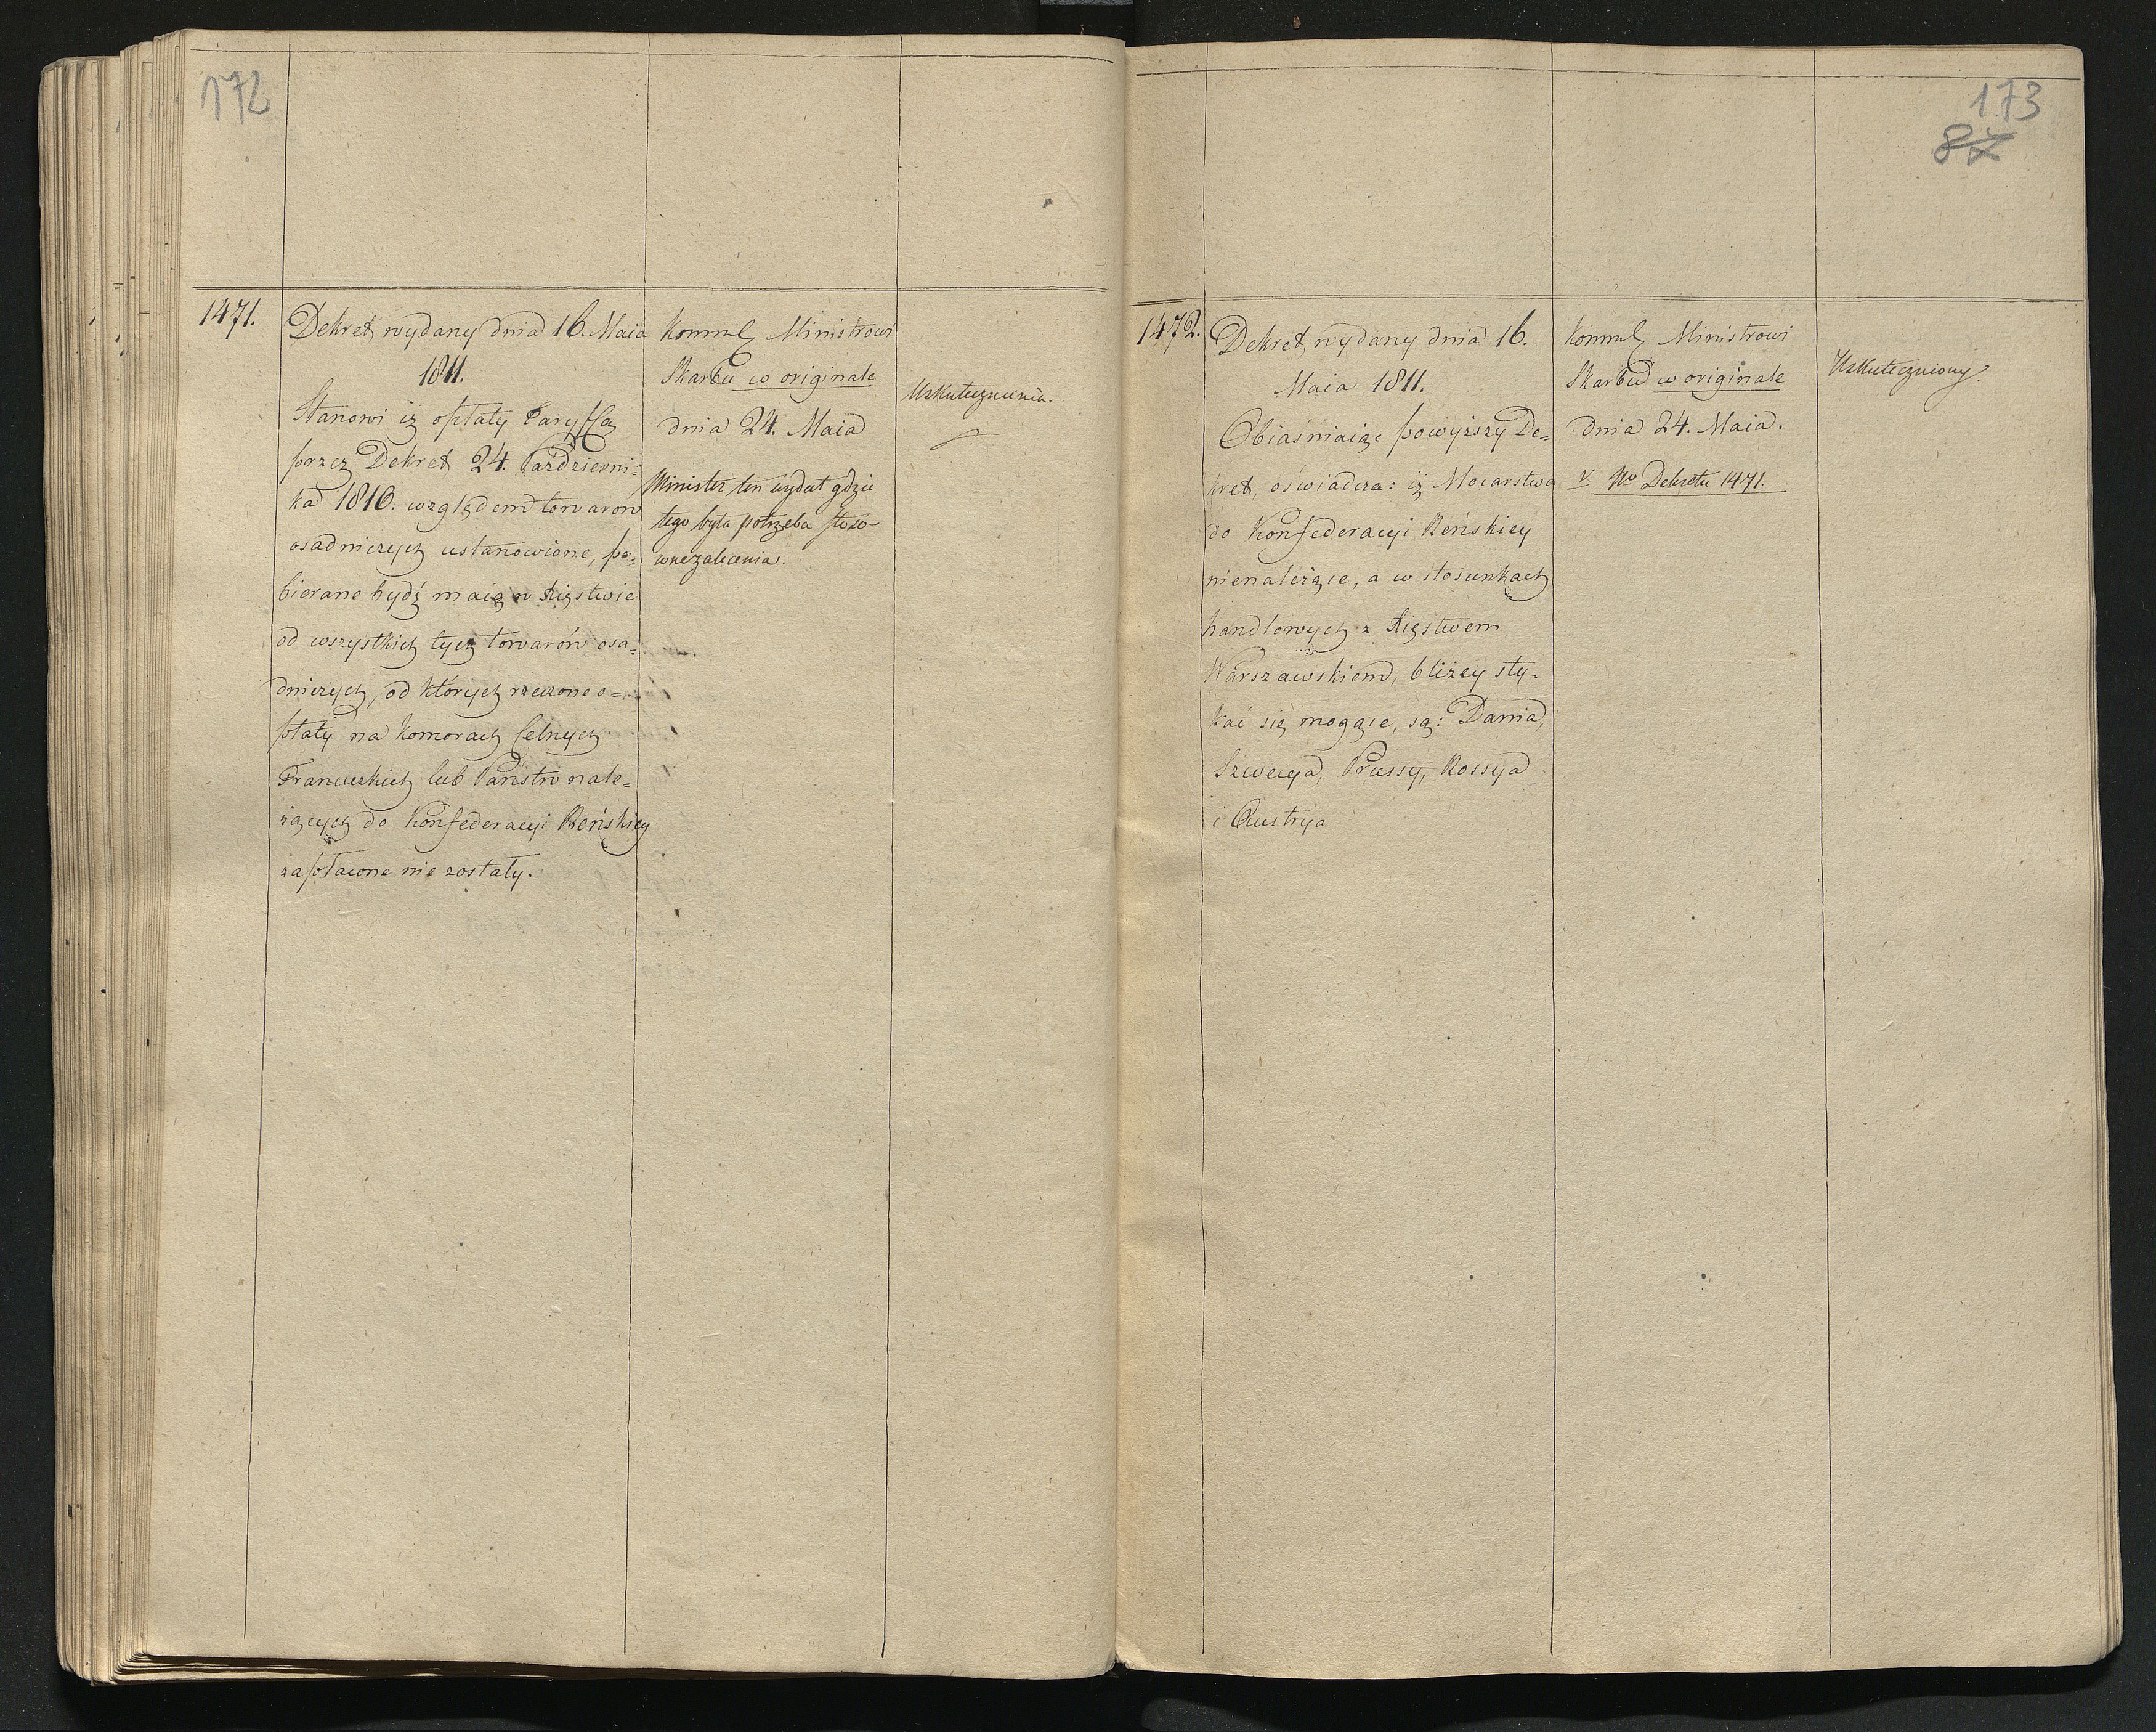 172
1471.
Dekret wydany dnia 16. Maia
1811.
Stanowi iż opłaty Taryffą
przez Dekret 24. Październi=
ka 1810. względem towarow
osadniczych ustanowione, po=
bierane bydź maią w Xięstwie
od wszystkich tych towarów osa=
dniczych, od których rzeczone o=
płaty na Komorach Celnych
Francuzkich lub Państw nale=
żących do Konfederacyi Reńskiey
zapłacone nie zostały.
Ministrowi
Skarbu w originale
dnia 24. Maia
Minister ten wydał gdzie
tego była potrzeba stoso-
wne zalecenia.
173
87
1472.
Dekret wydany dnia 16.
Maia 1811.
Obiaśniaiąc powyższy De=
kret, oświadcza: iż Mocarstwa
do Konfederacyi Reńskiey
nienależące, a w stosunkach
handlowych z Xięstwem
Warszawskiem, bliżey sty=
kać się mogące, są: Dania,
Szwecya, Prussy, Rossya
i Austrya
Ministrowi
Skarbu w originale
dnia 24. Maia.
v. No Dekretu 1471.
Uskuteczniony.